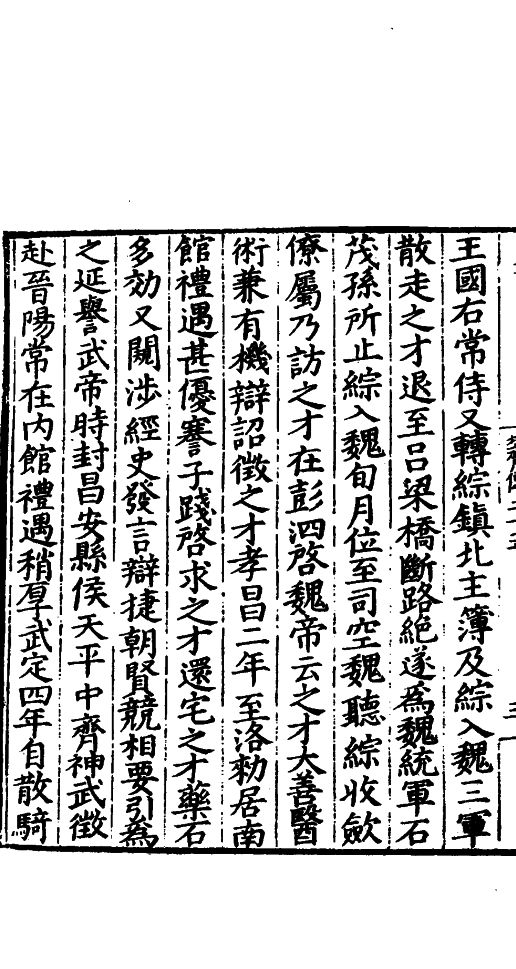 王國右常侍又轉綜鎮北主簿及綜入魏三軍
散走之才退至呂梁橋斷路絕遂爲魏統軍石
茂孫所止綜入魏旬月位至司空魏聽綜收斂
僚屬乃訪之才在彭泗啓魏帝云之才大善醫
術兼有機辯詔徵之才孝昌二年至洛勑居南
館禮遇甚優謇子踐啓求之才還宅之才藥石
多効又闚涉經史發言辯捷朝賢競相要引爲
之延譽武帝時封昌安縣侯天平中齊神武徵
赴晉陽常在內館禮遇稍厚武定四年自散騎